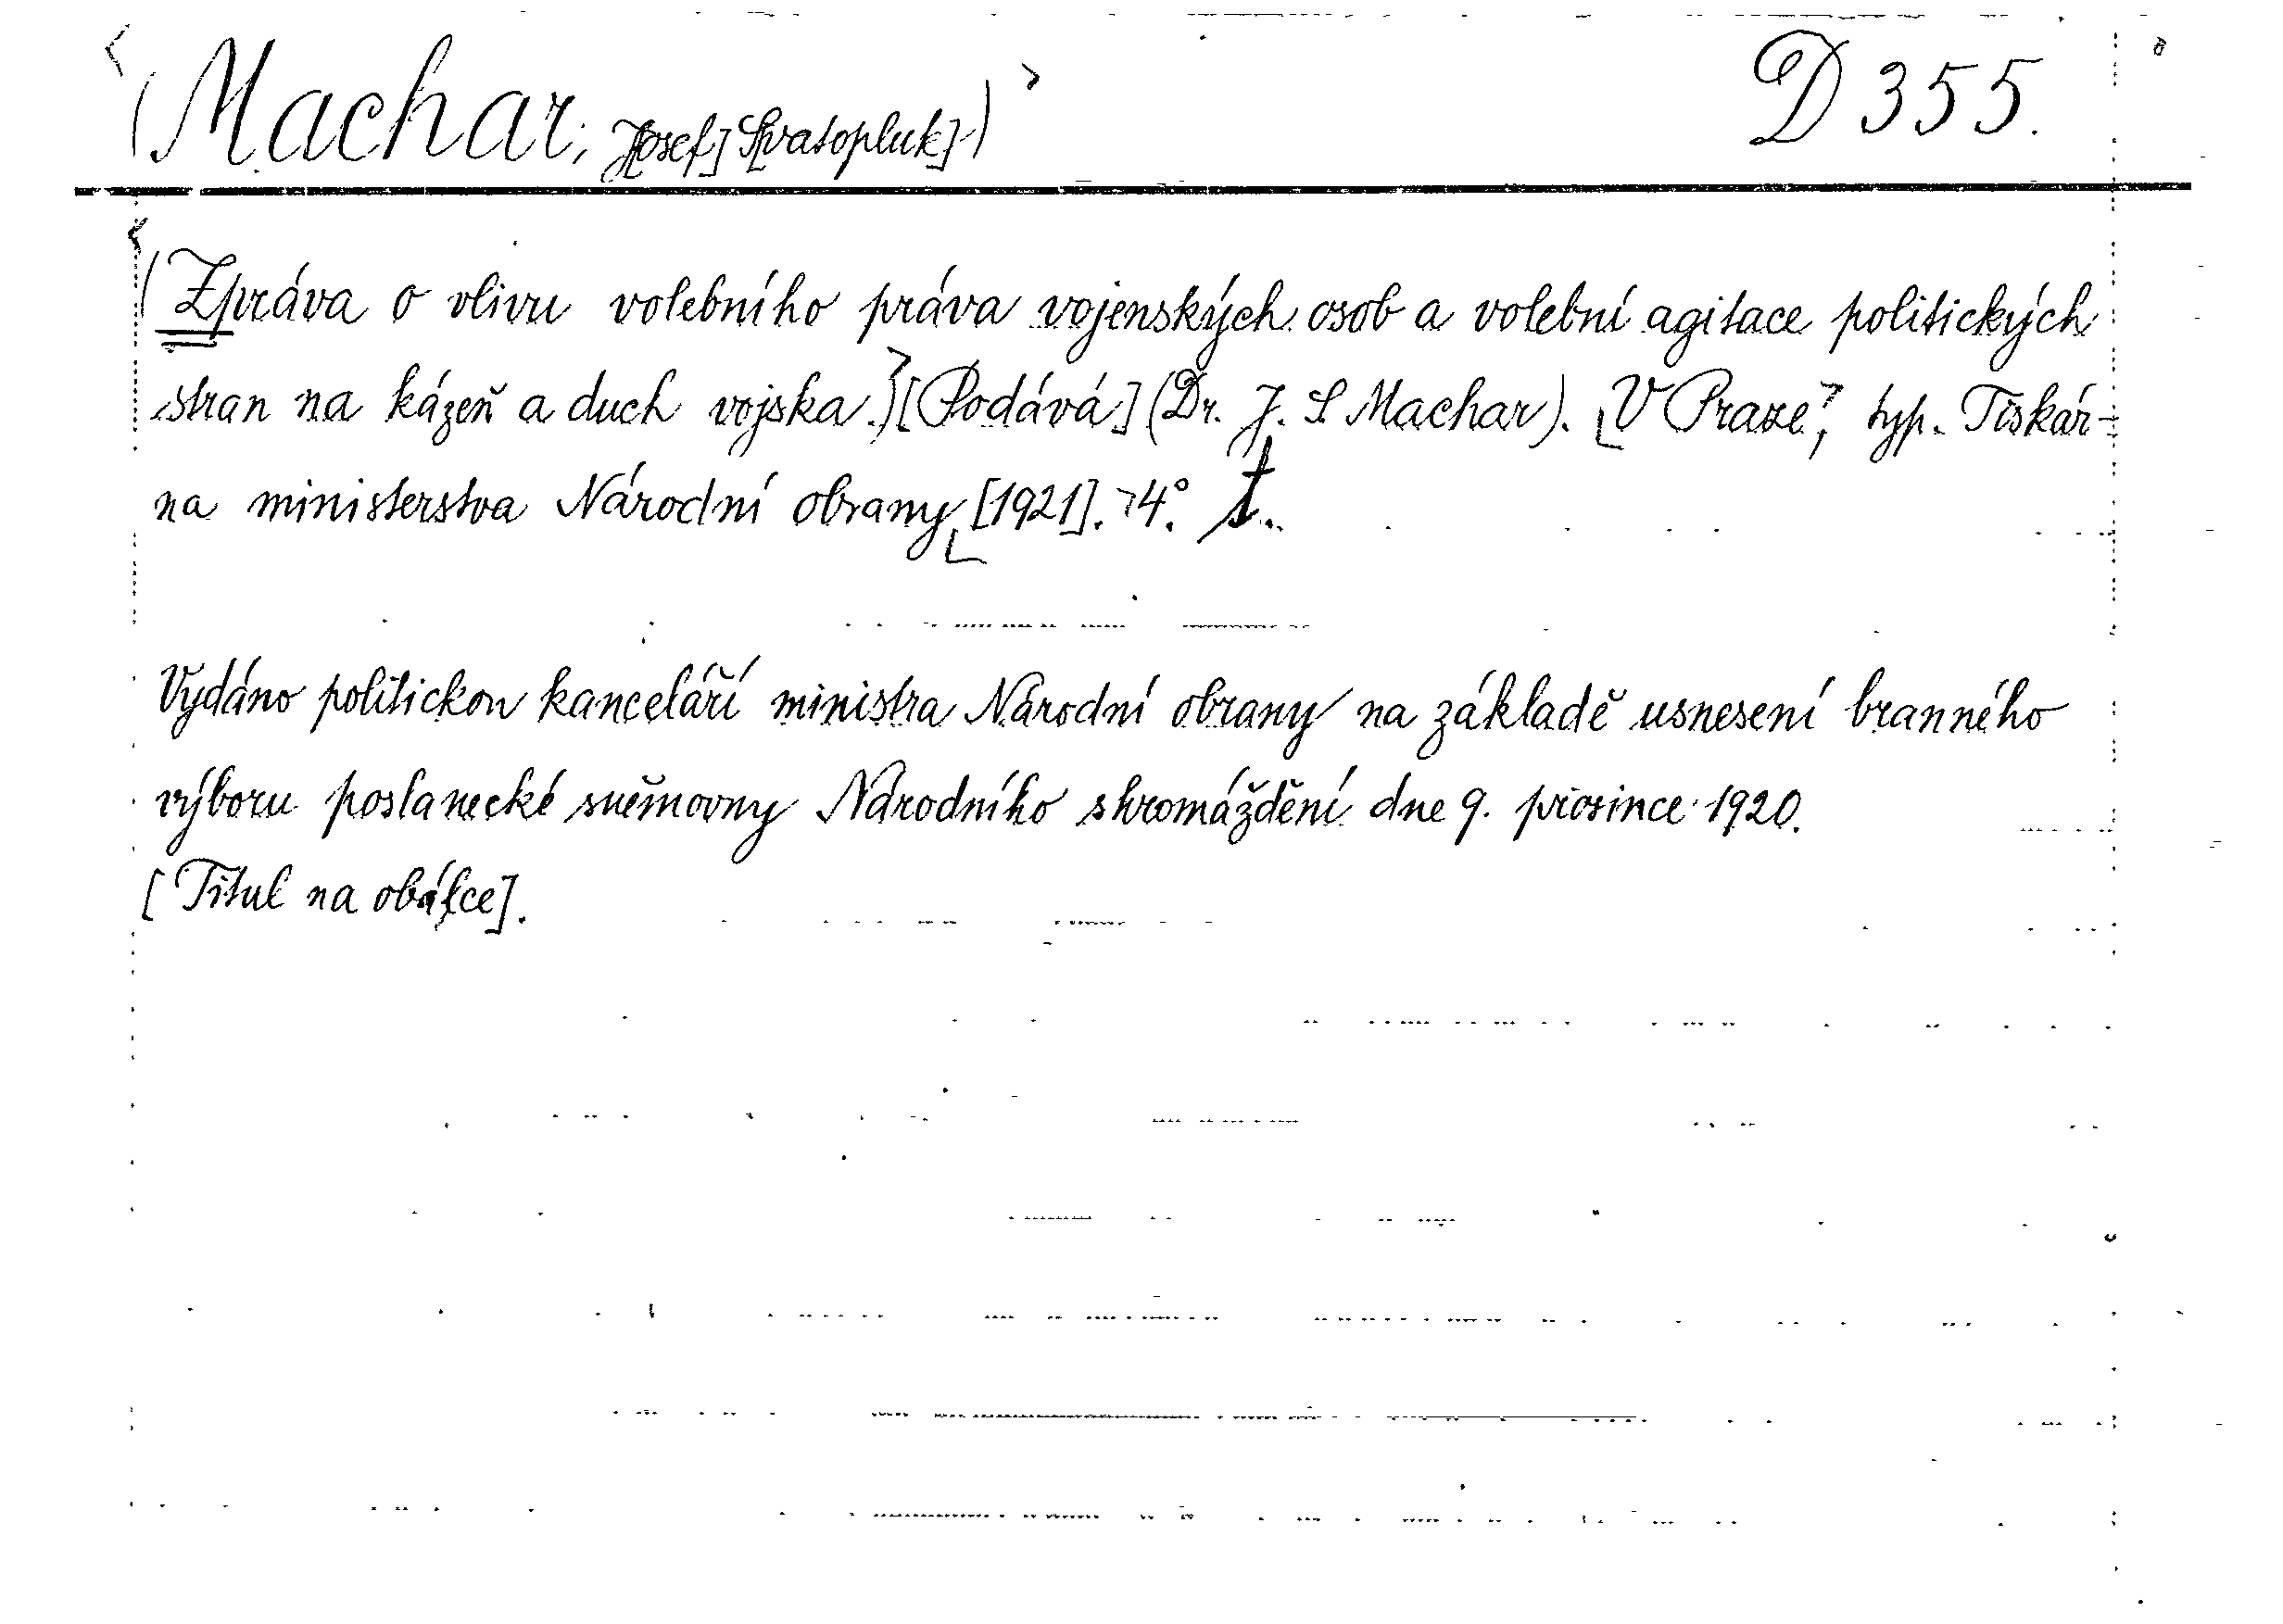 (Machar, J[osef] S[vatopluk]) D 355.
(Zpráva o vlivu volebního práva vojenských osob a volební agitace politických
stran na kázeň a duch vojska.) [Podává:] (Dr. J. S Machar). V Praze, typ. Tiskár-
na ministerstva Národní obrany, [1921]. 4°.
Vydáno politickou kanceláří ministra Národní obrany na základě usnesení branného
výboru poslanecké sněmovny Národního shromáždění dne 9. prosince 1920.
[Titul na obálce].